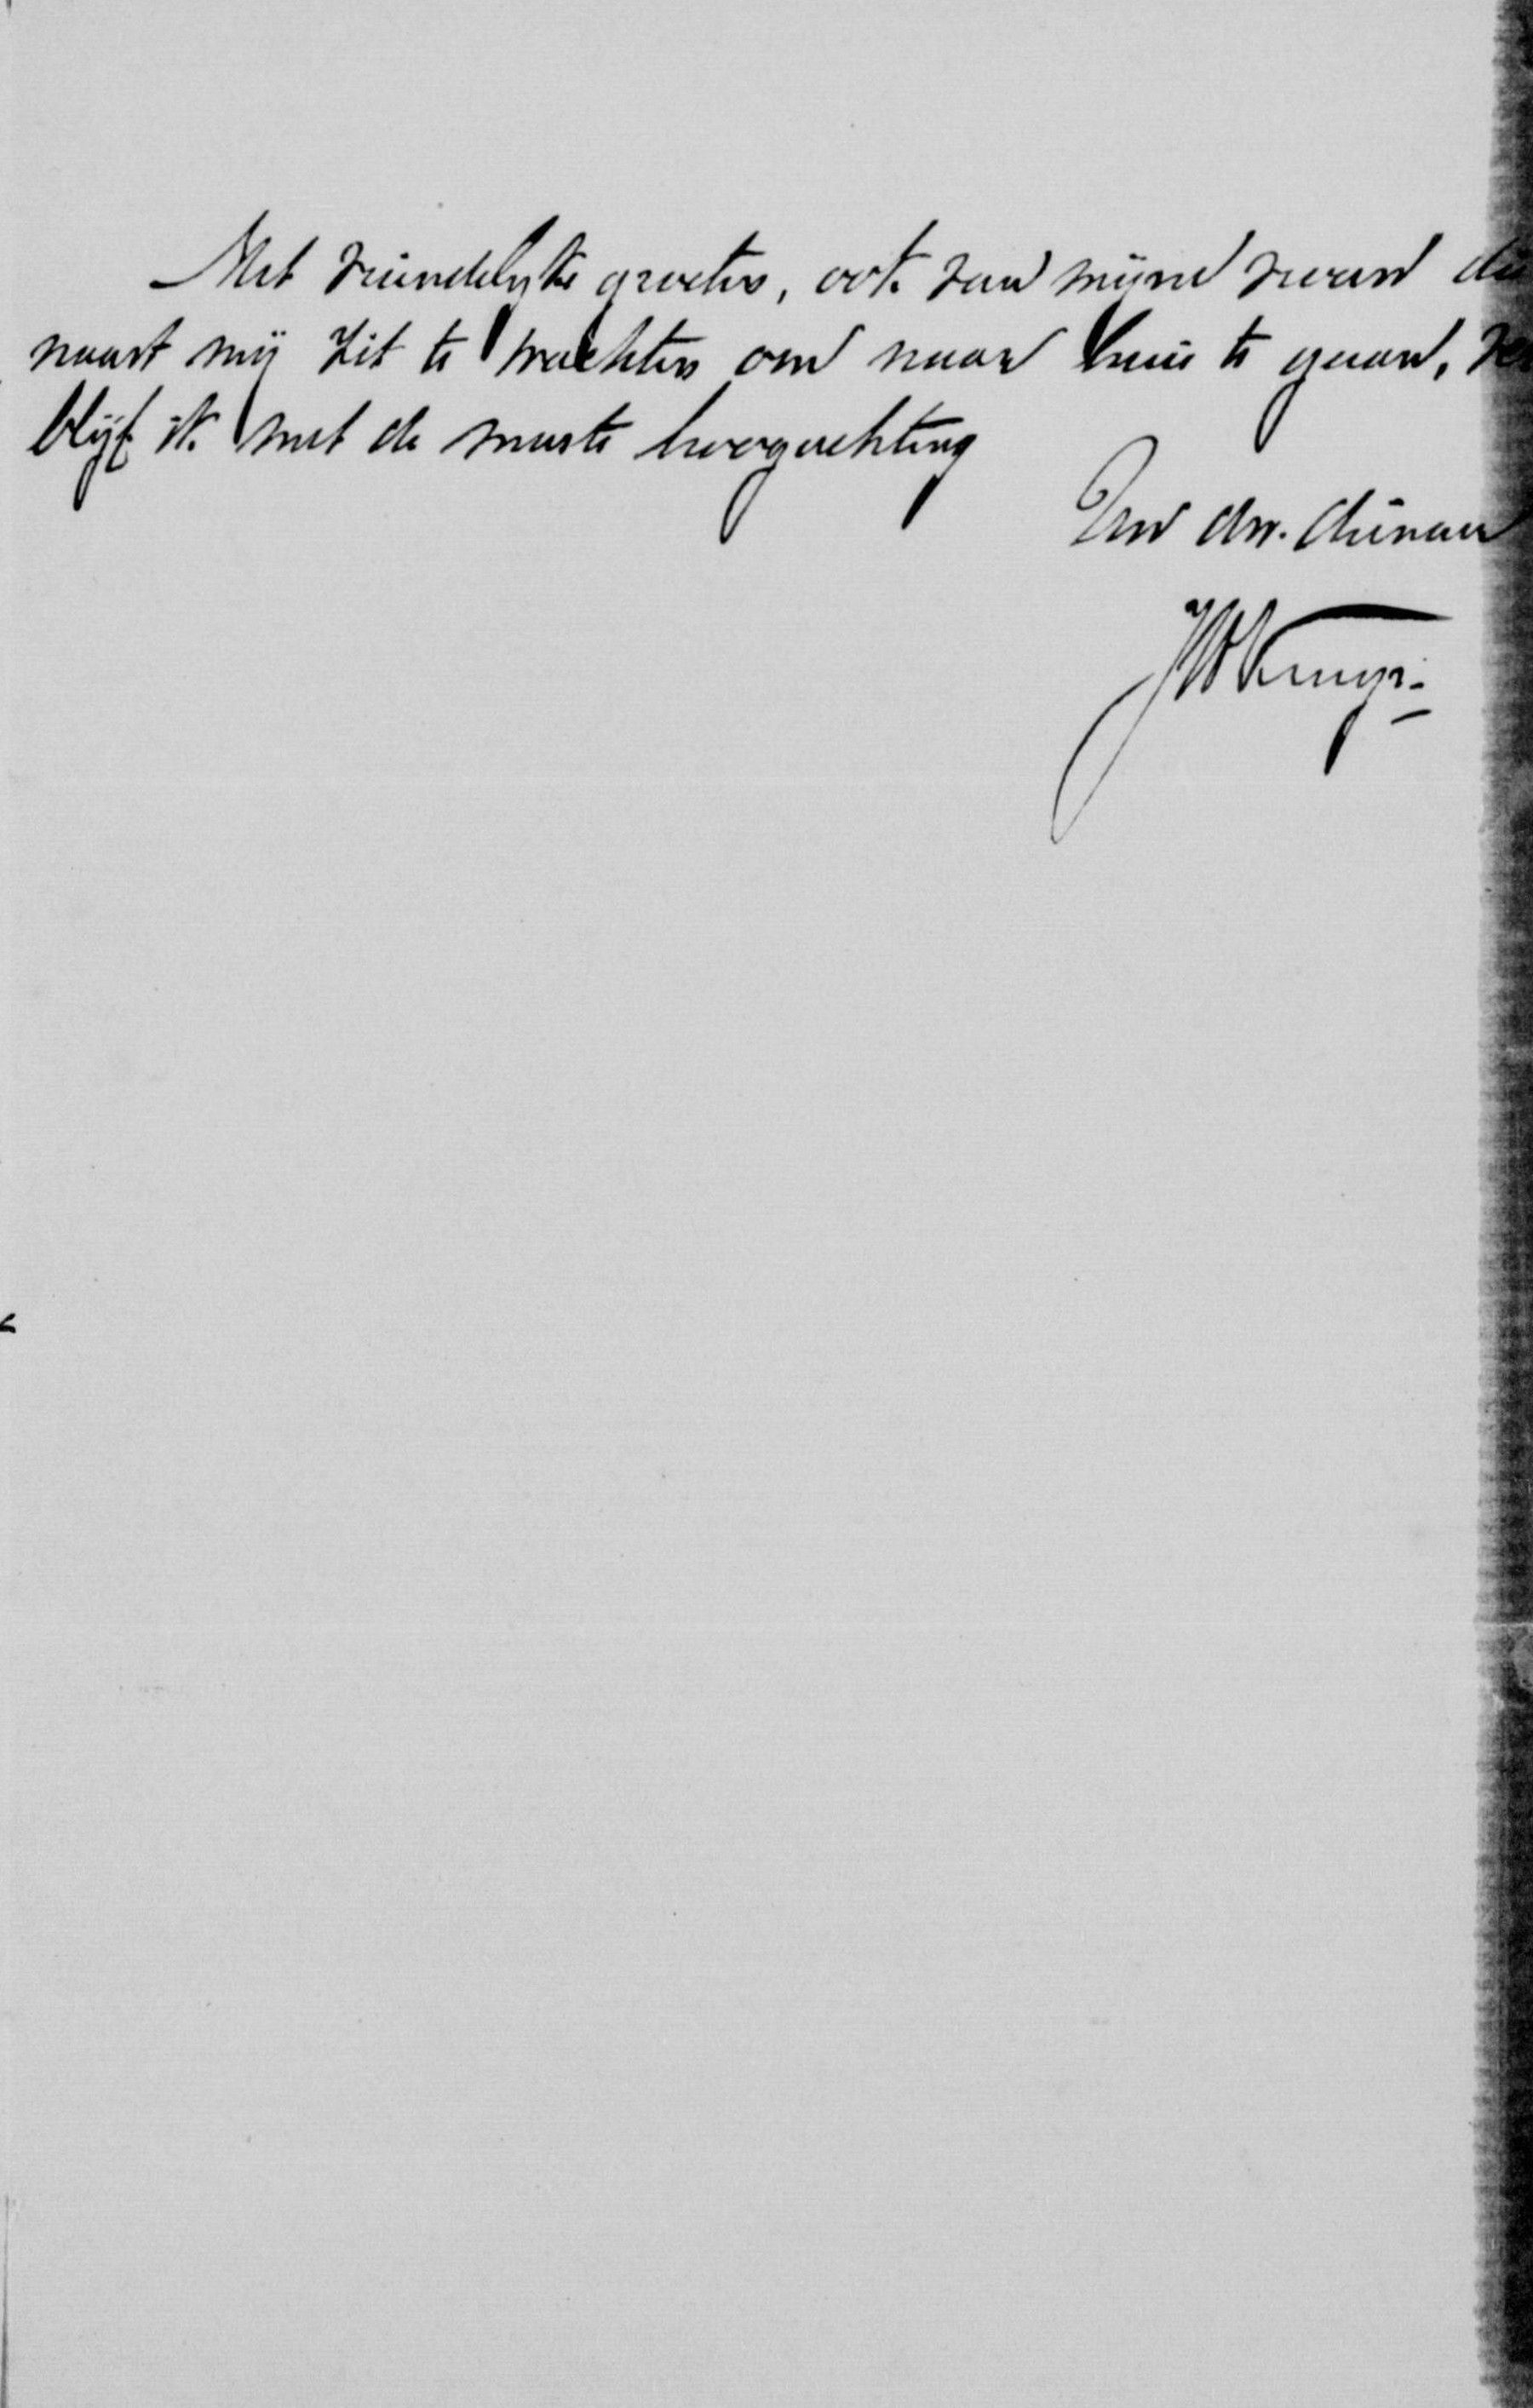 Met vriendelijke groeten, ook van mijne vrouw die
naast mij zit te wachten om naar huis te gaan, ver
blijf ik met de meeste hoogachting
Uw dw. dienaar